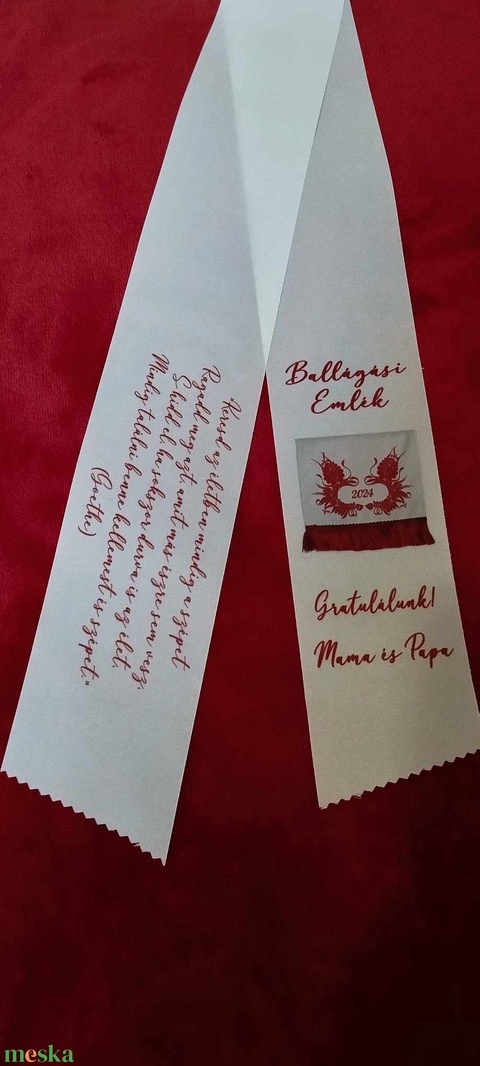 "Keresd az életben mindig a szépet
Ragadd meg azt amit más észre sem vesz.
S hidd el, ha sokszor durva is az élet.
Mindig találni benne kellemest és szépet."
(Goethe)
Ballagási
Emlék
2024
Gratulálunk!
Mama és Papa
meska